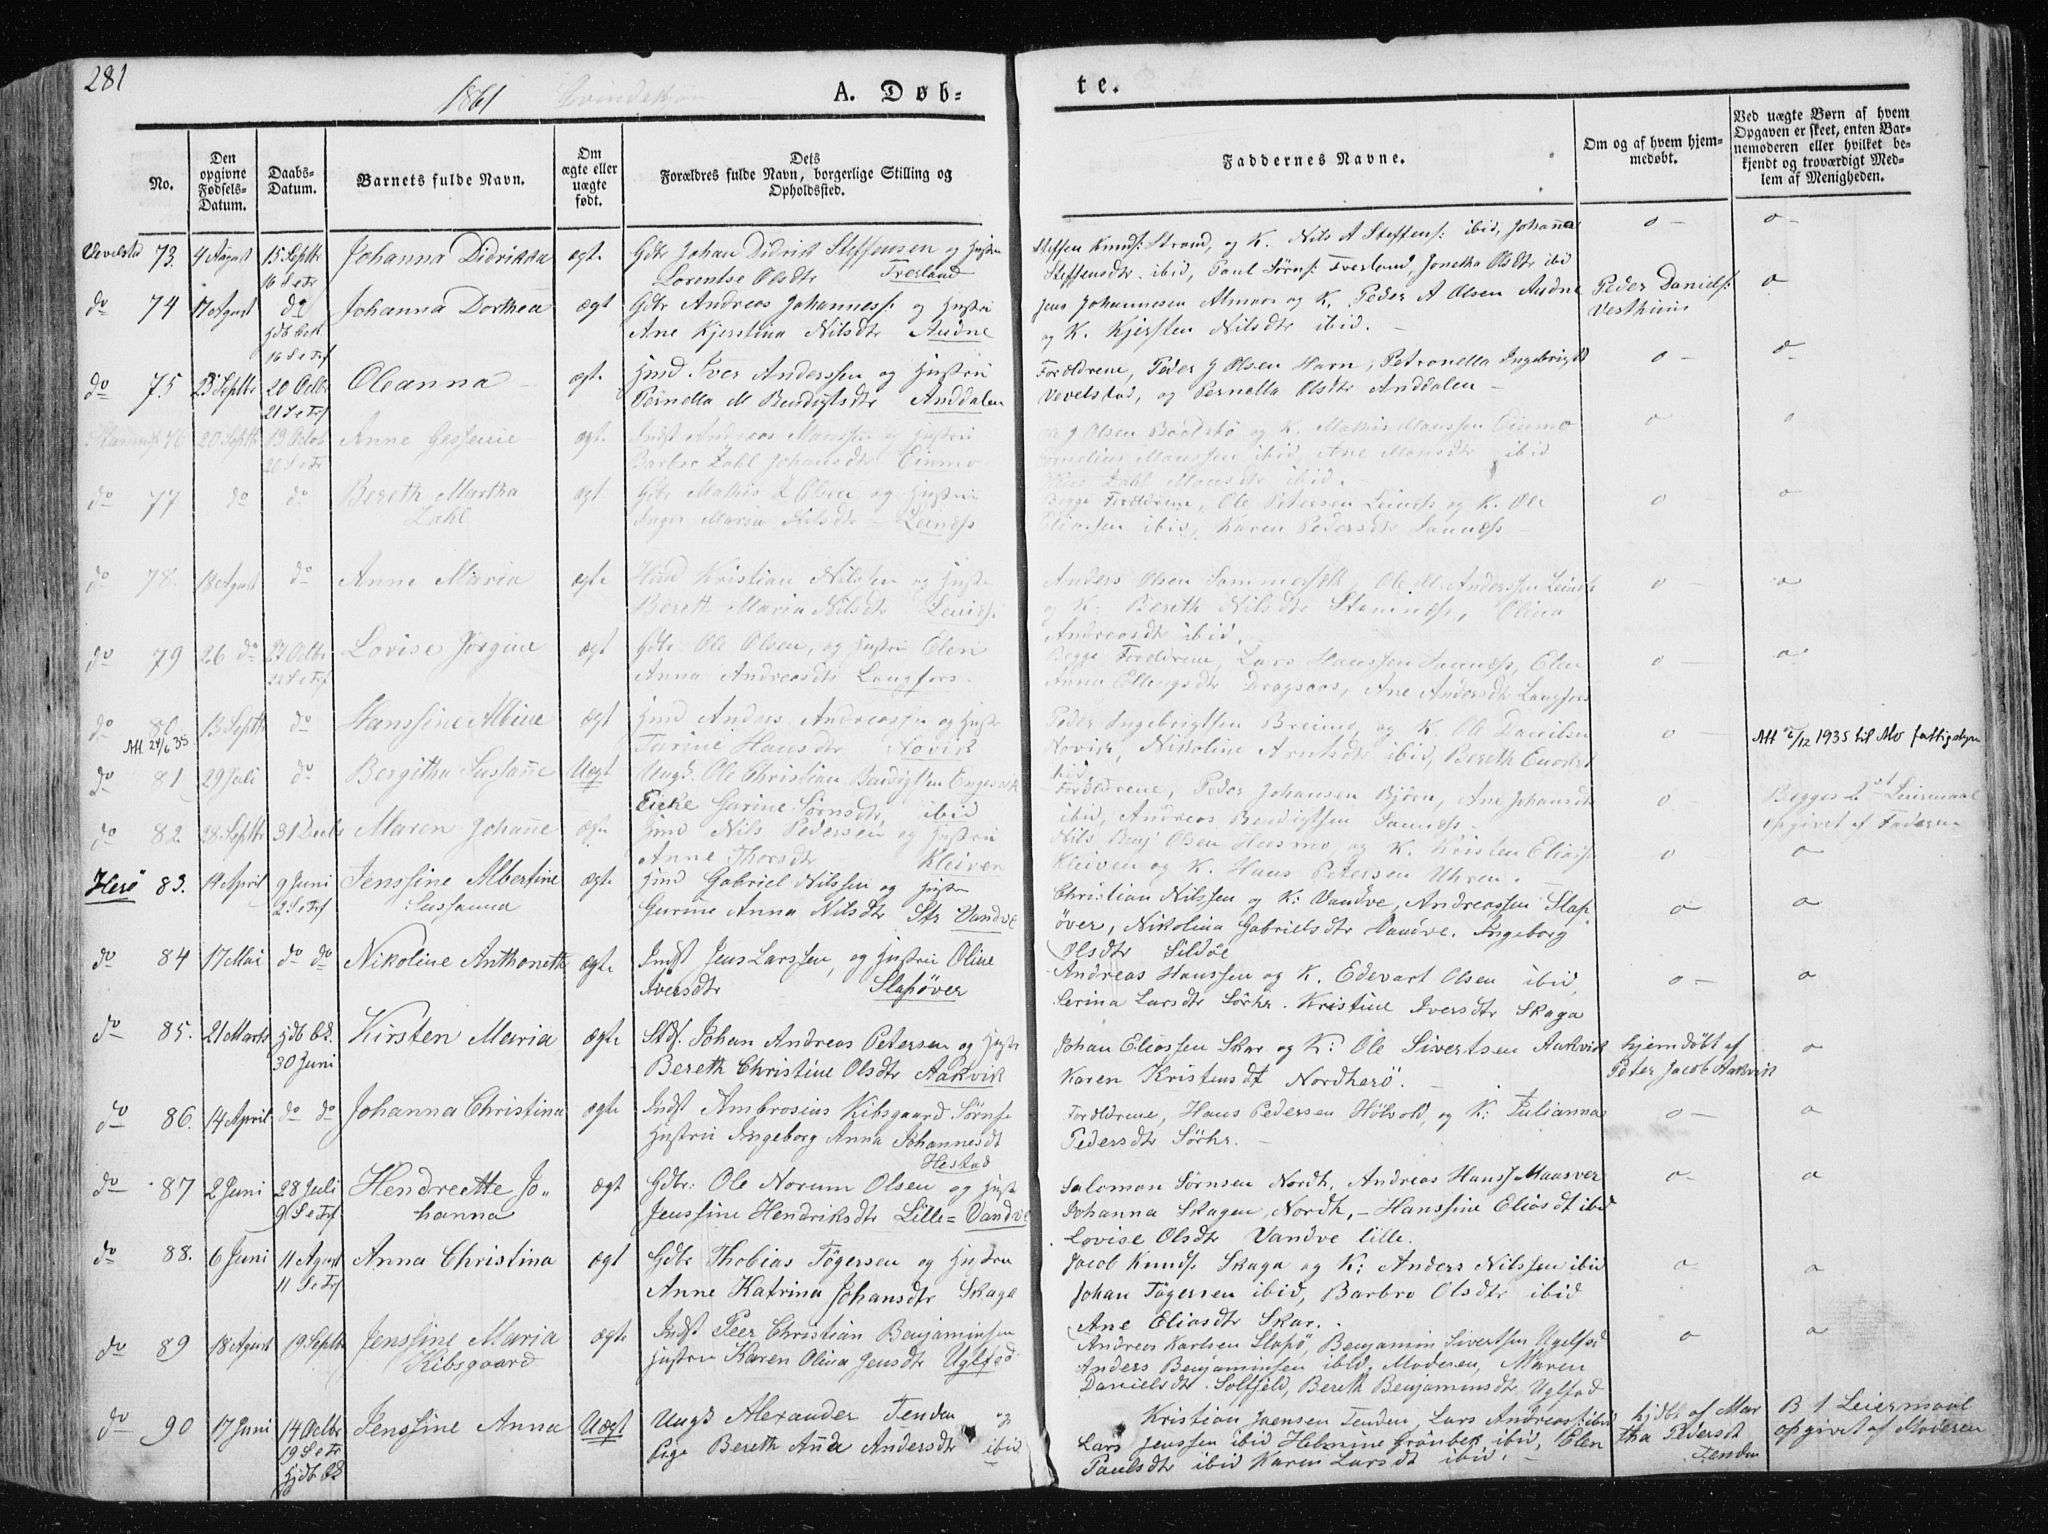 281
1861 Qvindekøn
A. Døb-
te.
No.
Den opgivne Fødsels-Datum.
Daabs-Datum.
Barnets fulde Navn.
Om ægte eller uægte født.
Dets Forældres fulde Navn, borgerlige Stilling og Opholdssted.
Faddernes Navne.
Om og af hvem hjem-medøbt.
Ved uægte Børn af hvem Opgaven er skeet, enten Bar-nemoderen eller hvilket be-kjendt og troværdigt Med-lem af Menigheden.
Vevelstad 73. 4 August 15 Septbr Johanna Didrikka ægte Gdbr Johan Didrik Steffensen og Hustru
16 S e Trf Lorentse Olsdtr Tverland
Steffen Knuds: Strand, og K. Nils A Steffens: ibid, Johanna
Steffensdtr ibid, Paul Sørns: Tverland, Jonetha Olsdtr ibid
o o
do 74 17 August do Johanna Dorthea ægt Gdbr Andreas Johannes: og Hustru
hjdb bek 16 S e Trf Ane Kjerstina Nilsdtr Audne
Jens Johannesen Almaas og K. Peder A Olsen Audne
og K. Kjersten Nilsdtr ibid.
Peder Daniels: Vesthuus o
do 75 23 Septbr 20 Octbr Oleanna ægte Hmd Iver Anderssen og Hustru
21 S e Trf Pernella M Bendigtsdtr Anddalen
Forældrene, Peder J Olsen Havn, Petronella Ingebrigtsd
Vevelstad, og Pernella Olsdtr Anddalen
o o
76 20 Septbr 13 Octob Anne Gessine ægt. Indst Andreas Monssen og Hustru
20 S e Tr Barbro Zahl Johansdtr Einmo
J Olsen og K. Mathis Monssen Einmo
Cornelius Monssen ibid, Ane Monsdtr ibid
Zahl Monsdtr ibid.
o o
do 77 do do Bereth Martha Zahl ægt Gdbr Mathis Olsen og Hustru
Inger Maria Nilsdtr Leinæss
Begge Forældrene, Ole Petersen Leinæss og K. Ole
Eliassen ibid, Karen Pedersdtr Sannæss
o o
do 78. 18 August do Anne Maria ægte Kristian Nilssen og Hustru
Bereth Maria Nilsdtr Leinæs.
Anders Olsen Sommersæth, Ole M. Anderssen Leinæs
og K: Bereth Nilsdtr Stamnæss, Olina
Andreasdtr ibid.
o o
do 79 26 do 27 Octbr Lovise Jørgine ægt Gdbr Ole Olsen, og Hustru Elen
Anna Andreasdtr Langfors.
Begge Forældrene, Lars Hanssen Sannæss, Elen
Anna Ellingsdtr Dragsaas, Ane Andersdtr Langfors
o o
do 80 13 Septbr do Hanssine Albine ægt Hmd Anders Andreassen og Hustr
Att. 24/6 35 Tarine Hansdtr Novik
Peder Ingebrigtsen Breimo, og K. Ole Danilsen
Novik, Nikoline Arntsdtr ibid, Bereth
ibid.
o Att 6/12 1935 til Mo fattigstyre
do 81 29 Juli do Bergitha Susanne Uægt Ungk. Ole Christian Bendigtsen Engesvik
Pige Garine Sørnsdtr ibid
Forældrene, Peder Johansen Bjørn, Ane Johansdtr
ibid, Andreas Bendigtsen Sannæss.
o Begges 2det Leiermaal opgivet af Faderen
do 82. 28 Septbr 31 Decbr Maren Johanne ægt. Hmd Nils Pedersen og Hustru
Anne Thorsdtr Kleiven
Nils Benj Olsen Husmo, og K. Kristen Eliass
Kleiven og K. Hans Petersen Uhren.
o o
Herø 83. 14 April 9 Juni Jenssine Albertine Sussanna ægte Hmd Gabriel Nilssen og Hustr
2 S e Trf Gurine Anna Nilsdtr Str Vandve
Christian Nilssen og K: Vandve, Andreassen Slap
øver, Nikolina Gabrielsdtr Vandve. Ingeborg
Olsdtr Sildøe
o o
do 84 17 Mai do do Nikoline Anthoneth ægte Indst Jens Larssen, og Hustru Oline
Iversdtr Slapøver
Andreas Hanssen og K. Edevart Olsen ibid,
Serina Larsdtr Sörhr. Kristine Iversdtr Skaga
o o
do 85. 21 Marts hjdb bk. 30 Juni Kirsten Maria ægte Std. Johan Andreas Petersen og Hustr
Bereth Christine Olsdtr Aakvik
Johan Eliassen Skar og K: Ole Sivertsen Aakvik
Karen Kristensdt Nordherö.
hjemdøbt af Peter Jacob Aakvik o
do 86. 14 April do do Johanna Christina ægte Indst Ambrosius Kibsgaard Sørnse
Hustru Ingeborg Anna Johannesdt
Hestad
Forældrene, Hans Pedersen Hölvold, og K: Julianna
Pedersdtr Sörhr.
o o
do 87 2 Juni 28 Juli Hendreette Jo- hanna ægt Gdbr. Ole Norum Olsen og Hustr
9 S e Trf Jenssine Hendriksdtr Lille= Vandve
Salomon Sørnsen Nordh, Andreas Hanss Maasver
Johanna Skagen Nordh, Hanssine Eliasdt ibid
Lovise Olsdtr Vandve lille.
o o
do 88. 6 Juni 11 August Anna Christina ægt Gdbr Thobias Tögersen og Hustru
11 S e Trf Anne Katrina Johansdtr Skaga
Jacob Knuds. Skaga og K: Anders Nilssen ibid
Johan Tögersen ibid, Barbro Olsdtr ibid
Ane Eliasdtr Skar.
o o
do 89 18 August 19 Septbr Jenssine Maria Kibsgaard ægte Indst Peer Christian Benjaminsen
Hustru Karen Olina Jensdtr Uglfad
Andreas Karlsen Slapö, Benjamin Sivertsen Uglfad
Anders Benjaminsen ibid, Moderen, Maren
Danielsdtr Soltfjeld, Bereth Benjaminsdtr Uglfad
o o
do 90 17 Juni 14 Octbr Jenssine Anna Uægt Ungk Alexander Tenden og
19 S e Tr hjdb bk Pige Bereth Anna Andersdtr ibid
Kristian Jaensen Tenden, Lars Andreas: ibid
Lars Jenssen ibid Helmine Grönbek ibid, Elen
Paulsdtr ibid Karen Larsdt ibid.
hjdbt af Mar tha Pedersdt Tenden
B 1 Leiermaal opgivet af Moderen